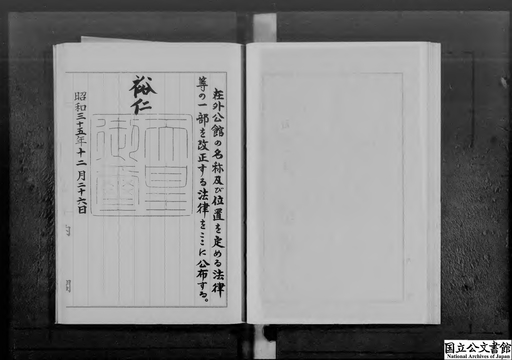 在外公館の名称及び位置を定める法律
等の一部を改正する法律をここに公布する。
裕仁
天皇
御璽
昭和三十五年十二月二十六日
国立公文書館
National Archives of Japan